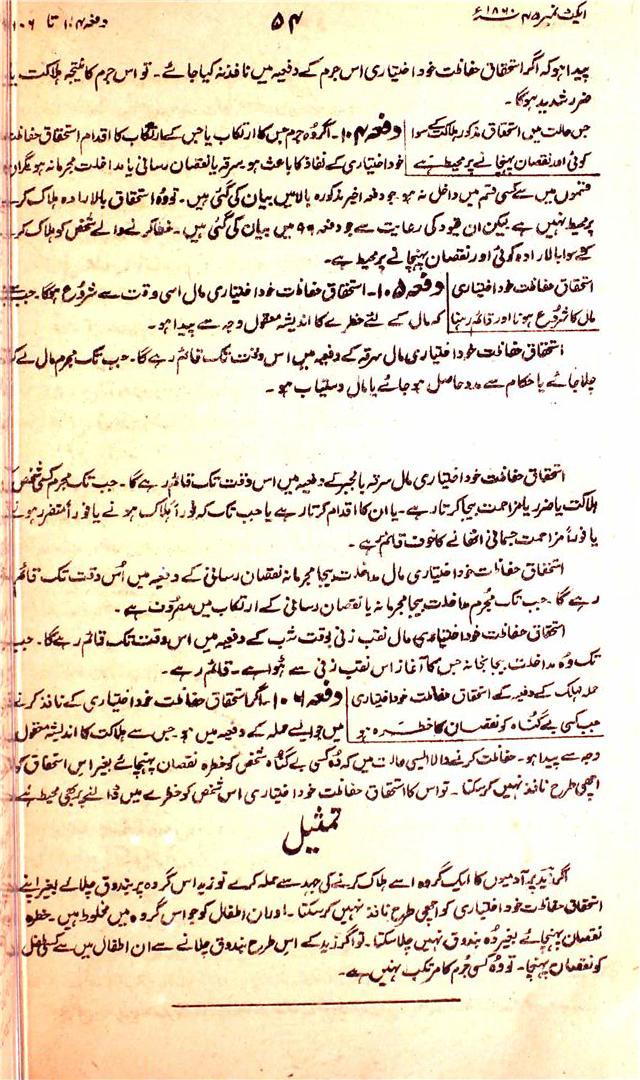 ایکٹ نمبر ۴۵ ۱۸۶۰ء
۵۴
دفعہ ۱۰۴ تا ۱۰۶
پیدا ہو کہ اگر استحقاق حفاظت خود اختیاری اس جرم کے دفعیہ میں نافذ نہ کیا جائے ۔ تو اس جرم کا نتیجہ ہلاکت یا
ضرر شدید ہوگا ۔
جس حالت میں استحقاق مذکور ہلاکت کے سوا
کوئی اور نقصان پہنچانے پر محیط ہے
دفعہ ۱۰۴ ۔ اگر وہ جرم جس کا ارتکاب یا جس کے ارتکاب کا اقدام استحقاق حفاظت
خود اختیاری کے نفاذ کا باعث ہو سرقہ یا نقصان رسانی یا مداخلت مجرمانہ ہو مگر ان
قسموں میں سے کسی قسم میں داخل نہ ہو ۔ جو دفعہ اخیر مذکورہ بالا میں بیان کی گئی ہیں ۔ تو وہ استحقاق بالارادہ ہلاک کرنے
پر محیط نہیں ہے لیکن ان قیود کی رعایت سے جو دفعہ ۹۹ میں بیان کی گئی ہیں ۔ خطا کرنے والے شخص کو ہلاک کرنے
کے سوا بالارادہ کوئی اور نقصان پہنچانے پر محیط ہے ۔
استحقاق حفاظت خود اختیاری
مال کا شروع ہونا اور قائم رہنا
دفعہ ۱۰۵ ۔ استحقاق حفاظت خود اختیاری مال اسی وقت سے شروع ہوگا ۔ جب سے
کہ مال کے لئے خطرے کا اندیشہ معقول وجہ سے پیدا ہو ۔
استحقاق حفاظت خود اختیاری مال سرقہ کے دفعیہ میں اس وقت تک قائم رہے گا ۔ جب تک مجرم مال لے کے
چلا جائے یا حکام سے مدد حاصل ہو جائے یا مال دستیاب ہو ۔
استحقاق حفاظت خود اختیاری مال سرقہ بالجبر کے دفعیہ میں اس وقت تک قائم رہے گا ۔ جب تک مجرم کسی شخص کی
ہلاکت یا ضرر یا مزاحمت بیجا کرتا رہے ۔ یا ان کا اقدام کرتا رہے یا جب تک کہ فوراً ہلاک ہونے یا فوراً متضرر ہونے
یا فوراً مزاحمت جسمانی اٹھانے کا خوف قائم رہے ۔
استحقاق حفاظت خود اختیاری مال مداخلت بیجا مجرمانہ نقصان رسانی کے دفعیہ میں اُس وقت تک قائم
رہے گا ۔ جب تک مجرم مداخلت بیجا مجرمانہ یا نقصان رسانی کے ارتکاب میں مصروف ہے ۔
استحقاق حفاظت خود اختیاری مال نقب زنی بوقت شب کے دفعیہ میں اس وقت تک قائم رہے گا ۔ جب
تک وہ مداخلت بیجا بخانہ جس کا آغاز اس نقب زنی سے ہوا ہے ۔ قائم رہے ۔
حملہ مہلک کے دفعیہ کے استحقاق حفاظت خود اختیاری
جب کسی بے گناہ کو نقصان کا خطرہ ہو
دفعہ ۱۰۶ ۔ اگر استحقاق حفاظت خود اختیاری کے نافذ کرنے
میں جو ایسے حملہ کے دفعیہ میں ہو جس سے ہلاکت کا اندیشہ معقول
وجہ سے پیدا ہو ۔ حفاظت کرنے والا ایسی حالت میں کہ وُہ کسی بے گناہ شخص کو خطرہ نقصان پہنچائے بغیر اس استحقاق کو
اچھی طرح نافذ نہیں کر سکتا ۔ تو اس کا استحقاق حفاظت خود اختیاری اس شخص کو خطرے میں ڈالنے پر بھی محیط ہے
تمثیل
اگر زید پر آدمیوں کا ایک گروہ اسے ہلاک کرنے کی جہد سے حملہ کرے تو زید اس گروہ پر بندوق چلائے بغیر اپنے
استحقاق حفاظت خود اختیاری کو اچھی طرح نافذ نہیں کر سکتا ۔ اور ان اطفال کو جو اس گروہ میں مخلوط ہیں ۔ خطرہ
نقصان پہنچائے بغیر وُہ بندوق نہیں چلا سکتا ۔ تو اگر زید کے اس طرح بندوق چلانے سے ان اطفال میں سے کسی طفل
کو نقصان پہنچا ۔ تو وُہ کسی جُرم کا مرتکب نہیں ہے ۔